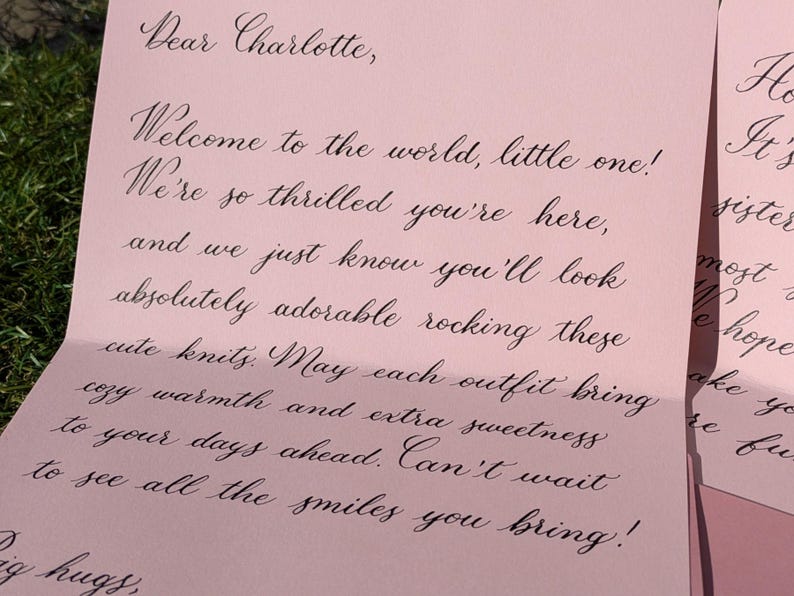 Dear Charlotte,
Welcome to the world, little one!
We're so thrilled you're here,
and we just know you'll look
absolutely adorable rocking these
cute knits. May each outfit bring
cozy warmth and extra sweetness
to your days ahead. Can't wait
to see all the smiles you bring!
Big hugs,
It's
sister
most
We hope